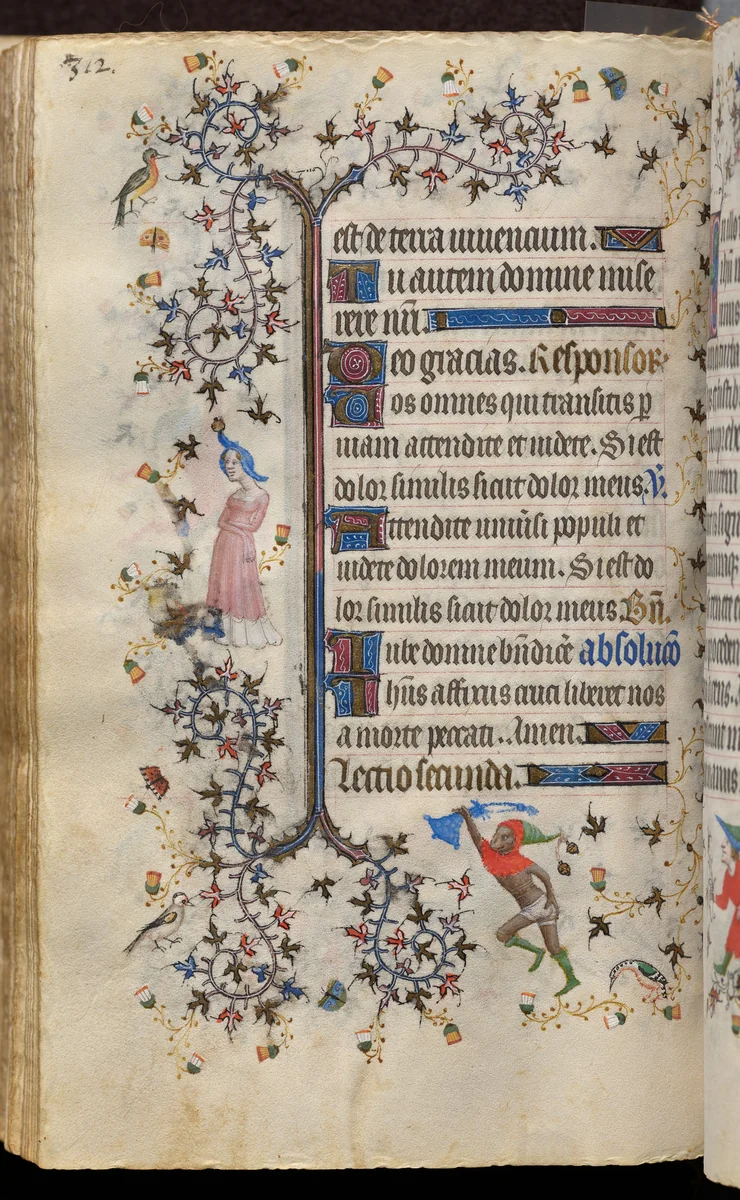 312.
est de terra uiuencium.
Tu autem domine mise
rere nr̄i.
Deo gracias. Responsor
Uos omnes qui transitis p̱
uiam attendite et uidete. Si est
dolor similis sicut dolor meus. V̄.
Attendite uniu̅si populi et
uidete dolorem meum. Si est do
lor similis sicut dolor meus. Bn̄.
Iube domne bn̄dic̄e absolucō
Ihūs affixus cruci liberet nos
a morte peccati. Amen.
Lectio secunda.